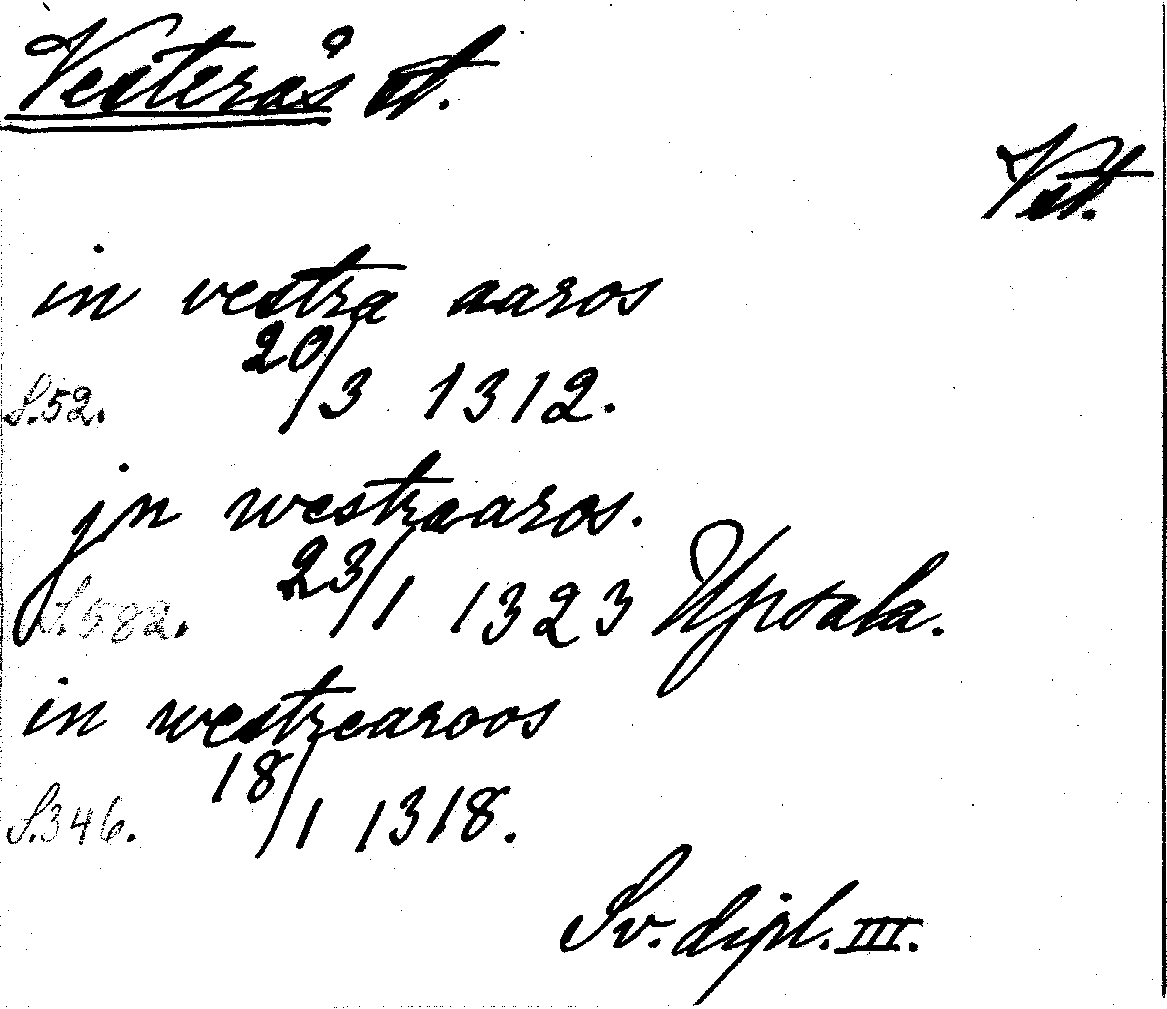 Vesterås st.
Vst.
in vestra aaros
20/3 1312.
S. 52.
jn westraaros.
23/1 1323 Upsala.
S. 582.
in westrearoos
18/1 1318.
S. 346.
Sv. dipl. III.